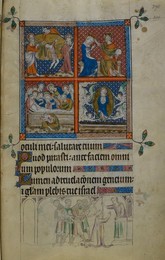 oculi mei: salutare tuum
Quod parasti: ante faciem omni
um populorum
Lumen ad reuelacionem gencium:
glam plebis tue israel